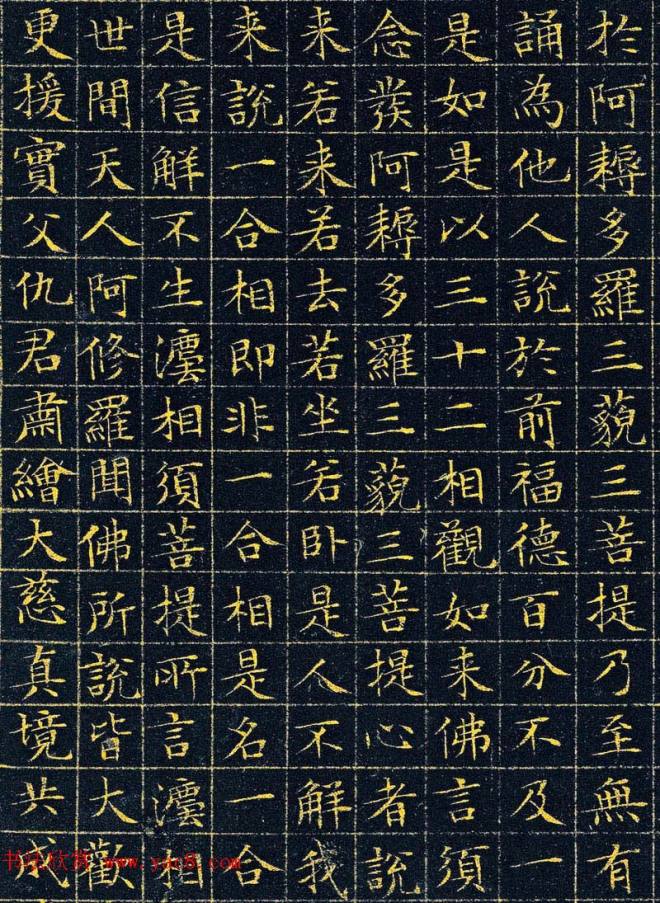 於阿耨多羅三藐三菩提乃至無有
誦為他人說於前福德百分不及一
是如是以三十二相觀如来佛言須
念發阿耨多羅三藐三菩提心者說
来若来若去若坐若卧是人不解我
来說一合相即非一合相是名一合
是信解不生灋相須菩提所言灋相
世間天人阿修羅聞佛所說皆大歡
更援實父仇君肅繪大慈真境共
书法欣赏 www.yac8.com